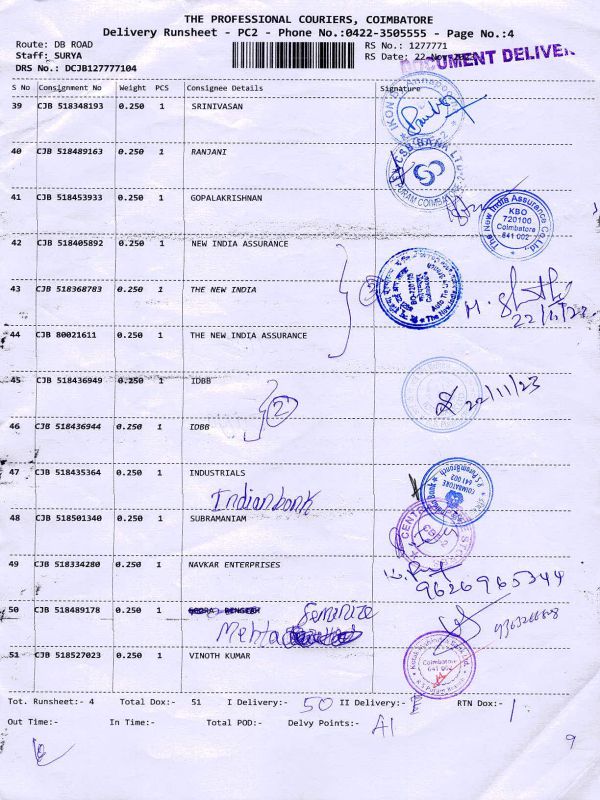 THE PROFESSIONAL COURIERS, COIMBATORE
Delivery Runsheet - PC2 - Phone No.:0422-3505555 - Page No.:4
Route: DB ROAD
RS No.: 1277771
Staff: SURYA
RS Date: 22-Nov-
DOCUMENT DELIVER
DRS No.: DCJB127777104
S No Consignment No Weight PCS Consignee Details Signature
39 CJB 518348193 0.250 1 SRINIVASAN
40 CJB 518489163 0.250 1 RANJANI
CSB BANK LTD
41 CJB 518453933 0.250 1 GOPALAKRISHNAN
The New India Assurance Co.Ltd.
KBO
720100
Coimbatore
641 002
42 CJB 518405892 0.250 1 NEW INDIA ASSURANCE
43 CJB 518368783 0.250 1 THE NEW INDIA
3
22/11/23
44 CJB 80021611 0.250 1 THE NEW INDIA ASSURANCE
45 CJB 518436949 0.250 1 IDBB
2
22/11/23
46 CJB 518436944 0.250 1 IDBB
47 CJB 518435364 0.250 1 INDUSTRIALS
Indian bank
COIMBATORE
641 002
48 CJB 518501340 0.250 1 SUBRAMANIAM
49 CJB 518334280 0.250 1 NAVKAR ENTERPRISES
9626965344
50 CJB 518489178 0.250 1
Feminize
Mehta
51 CJB 518527023 0.250 1 VINOTH KUMAR
Coimbatore
641 002
Tot. Runsheet:- 4 Total Dox:- 51 I Delivery:- 50 II Delivery:- RTN Dox:- 1
Out Time:- In Time:- Total POD:- Delvy Points:- A1
9